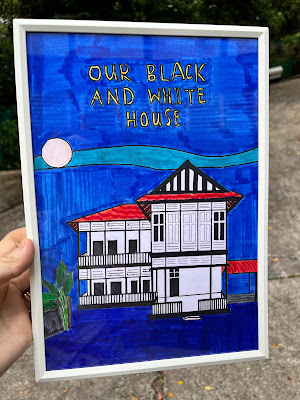 OUR BLACK
AND WHITE
HOUSE